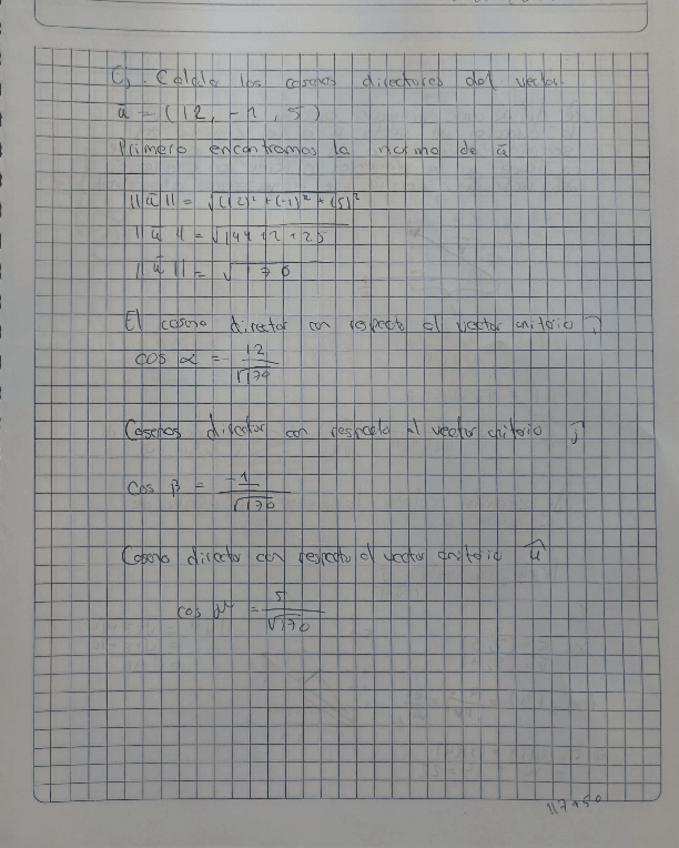 C) Calcula los cosenos directores del vector
ā = (12, -1, 5)
Primero encontramos la norma de ā
||ā|| = √(12)² + (-1)² + (5)²
||ā|| = √144 + 1 + 25
||ā|| = √170
El coseno director con respecto al vector
cos α = 12/√170
Cosenos director con respecto al vector j
cos β = -1/√170
Coseno director con respecto al vector
cos = 5/√170